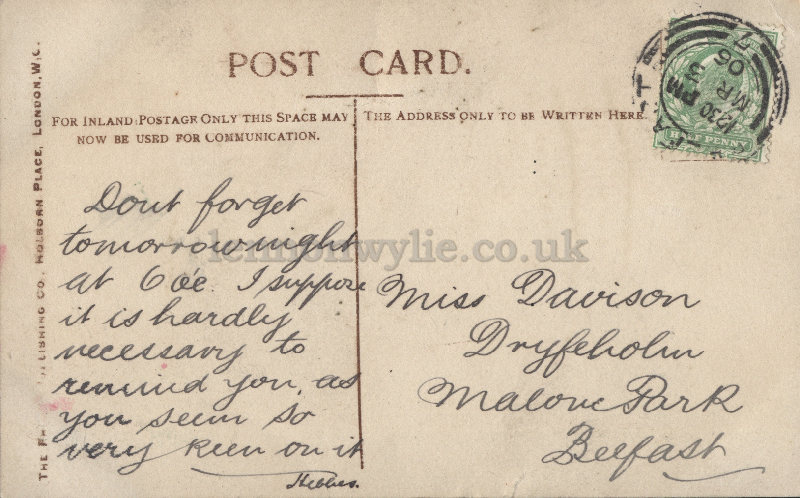 POST CARD.
FOR INLAND POSTAGE ONLY THIS SPACE MAY
NOW BE USED FOR COMMUNICATION.
THE ADDRESS ONLY TO BE WRITTEN HERE.
Dont forget
tomorrow night
at 6 o'c. I suppose
it is hardly
necessary to
remind you, as
you seem so
very keen on it
Miss Davison
Dryfeholm
Malone Park
Belfast
LISHING CO., HOLBORN PLACE, LONDON, W.C.
12 30 PM
MR 3
05
PENNY
lennonwylie.co.uk